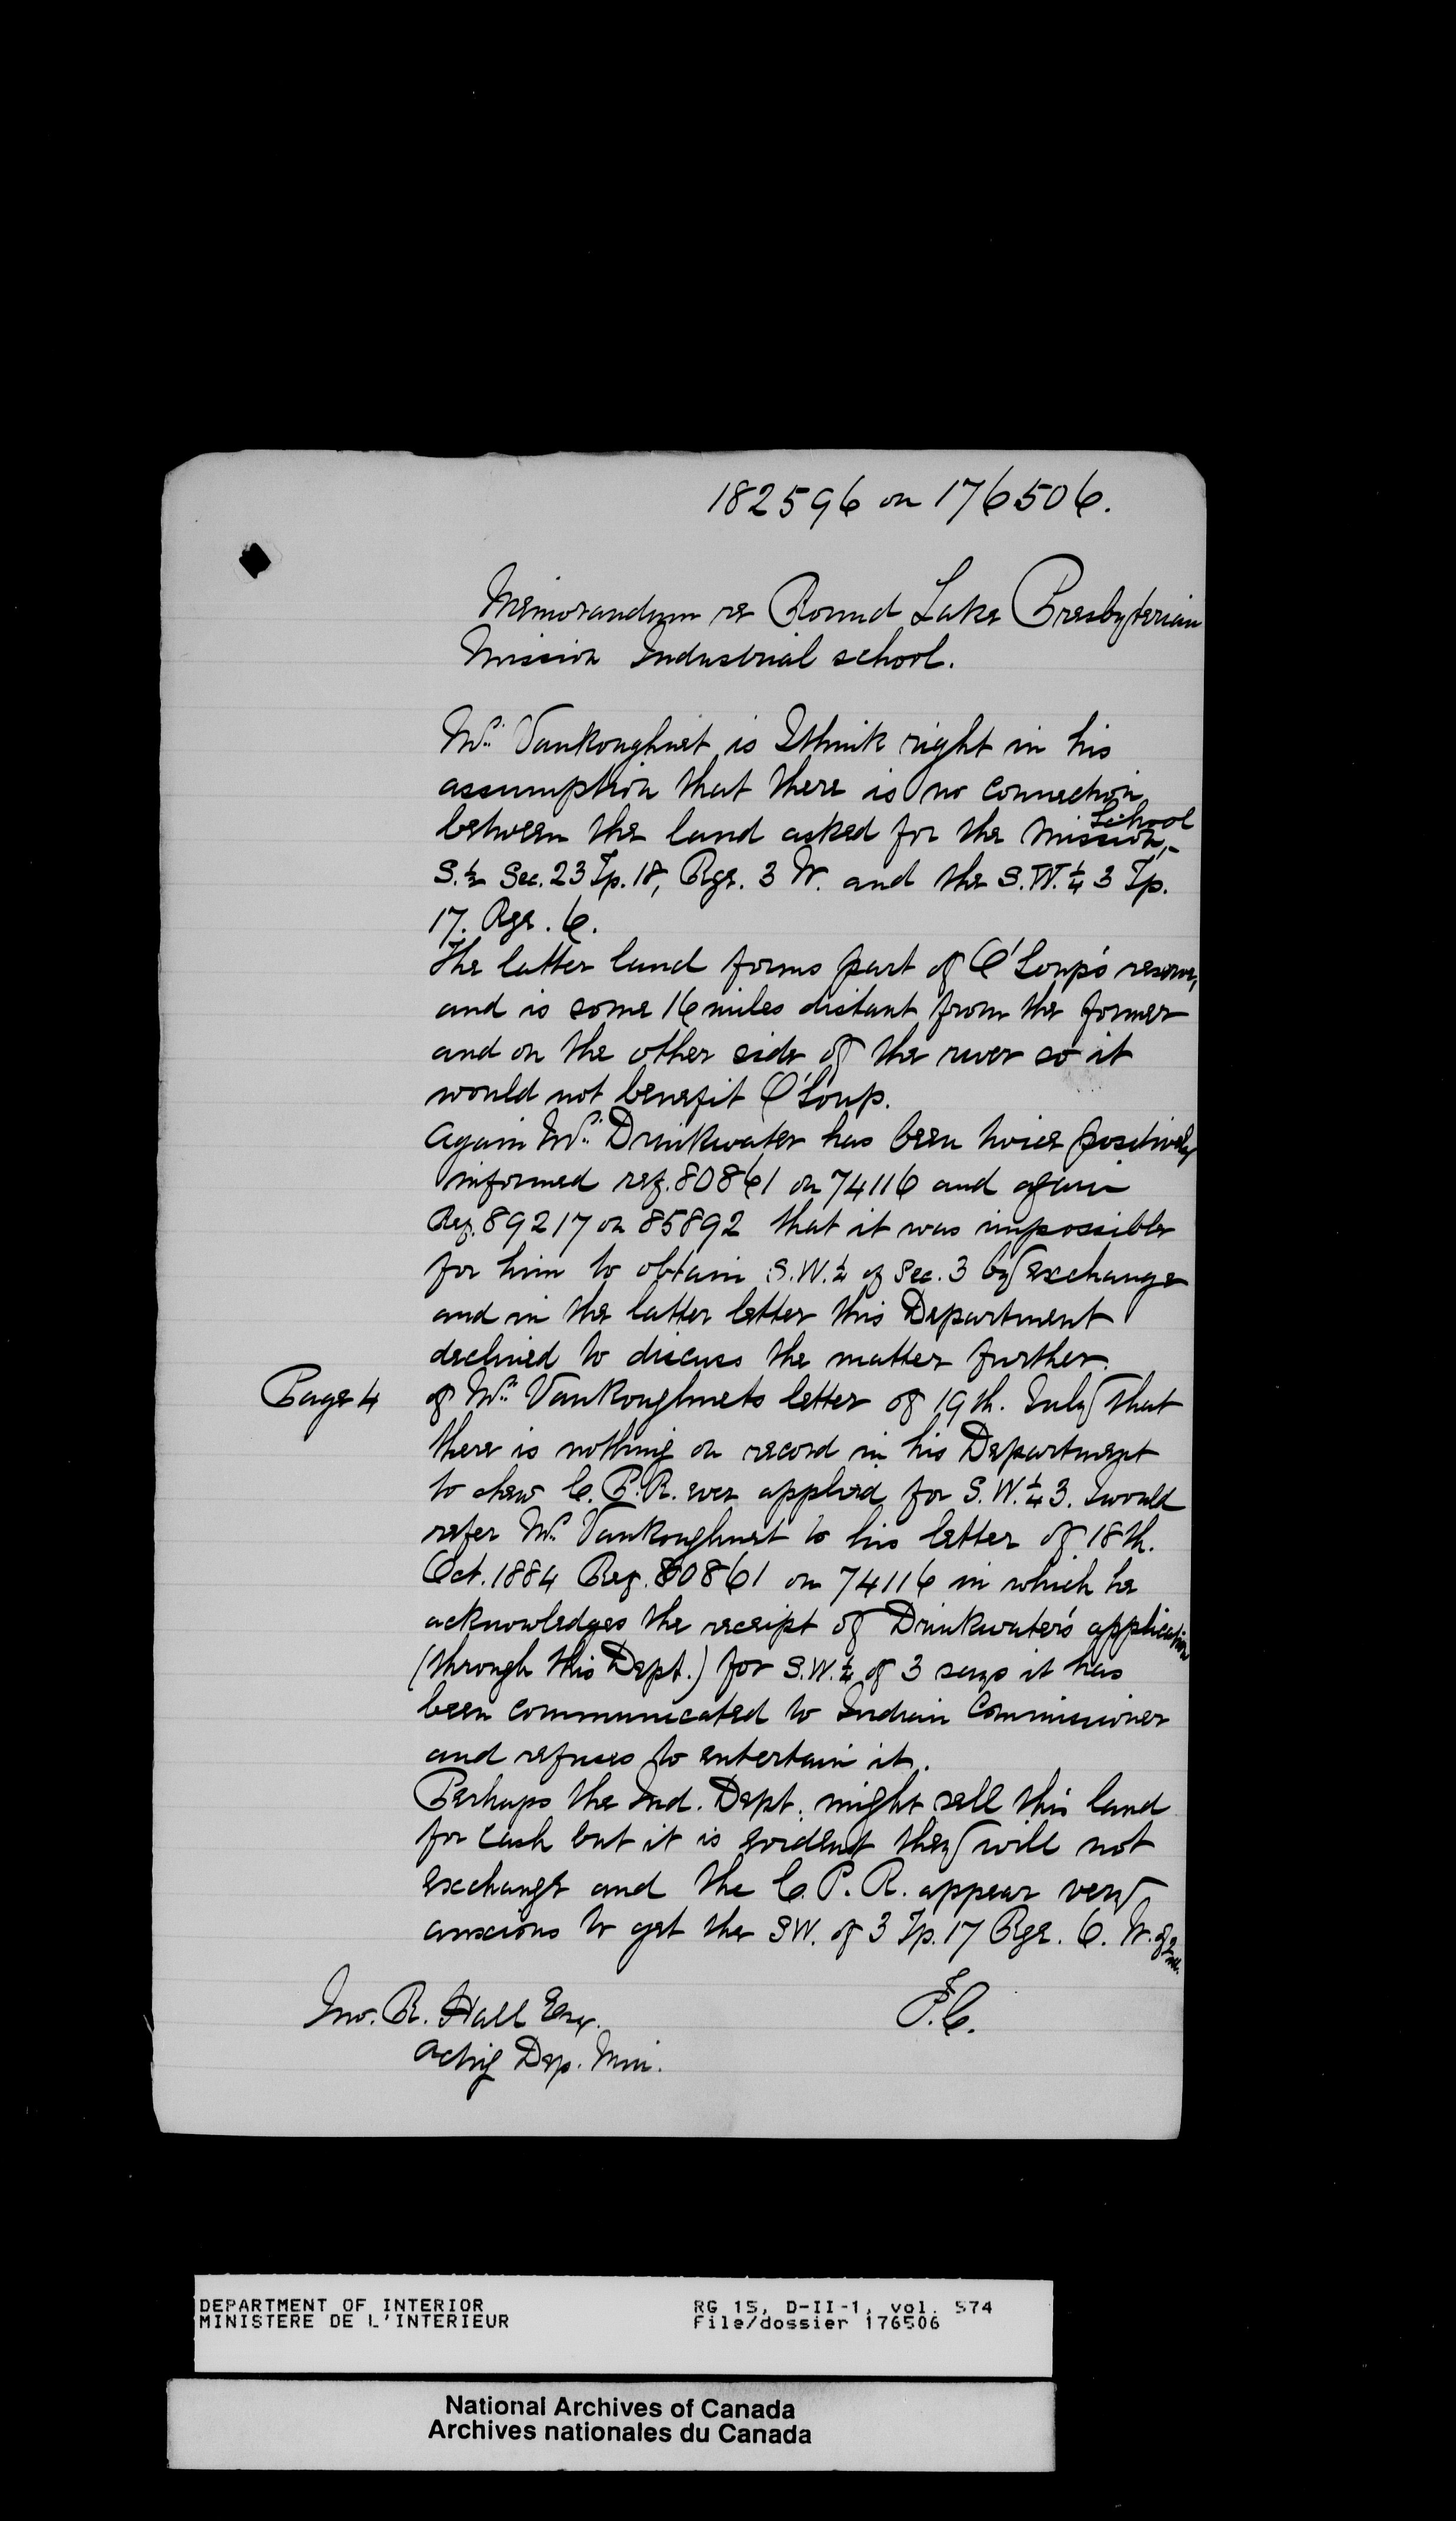 182596 on 176506.
Memorandum re Round Lake Presbyterian
Mission Industrial school.
Mr. Vankoughnet is I think right in his
assumption that there is no connection
between the land asked for the Mission School,-
S.½ Sec. 23 Tp. 18, Rge. 3 W. and the S.W.¼ 3 Tp.
17. Rge. 6.
The latter land forms part of O'Soup's reserve,
and is some 16 miles distant from the former
and on the other side of the river so it
would not benefit O'Soup.
Again Mr. Drinkwater has been twice positively
informed ref. 80861 on 74116 and again
Ref. 89217 on 85892 that it was impossible
for him to obtain S.W.¼ of Sec. 3 by exchange
and in the latter letter this Department
declined to discuss the matter further.
Page 4 of Mr. Vankoughnets letter of 19th. July that
there is nothing on record in his Department
to shew C.P.R. ever applied for S.W.¼ 3. I would
refer Mr. Vankoughnet to his letter of 18th.
Oct. 1884 Ref. 80861 on 74116 in which he
acknowledges the receipt of Drinkwater's application
(through this Dept.) for S.W.¼ of 3 says it has
been communicated to Indian Commissioner
and refuses to entertain it.
Perhaps the Ind. Dept. might sell this land
for cash but it is evident they will not
exchange and the C.P.R. appear very
anxious to get the SW. of 3 Tp. 17 Rge. 6. W. of 2nd.
Jno. R. Hall Esq.
Acting Dep. Min.
DEPARTMENT OF INTERIOR
MINISTERE DE L'INTERIEUR
RG 15, D-II-1, vol. 574
File/dossier 176506
National Archives of Canada
Archives nationales du Canada